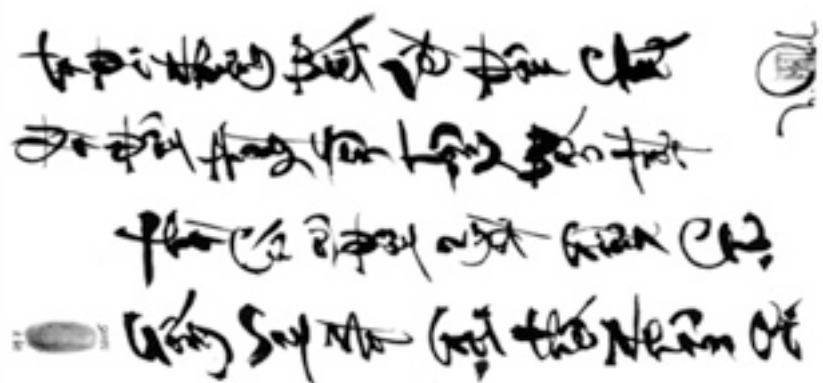 Ta Đi Nhưng Biết Về Đâu Chứ
Đã Đẩy Phong Yên Lộng Bốn Trời
Thà Cứ Ở Đây Ngồi Giữa Chợ
Uống Say Mà Gọi Thế Nhân Ơi